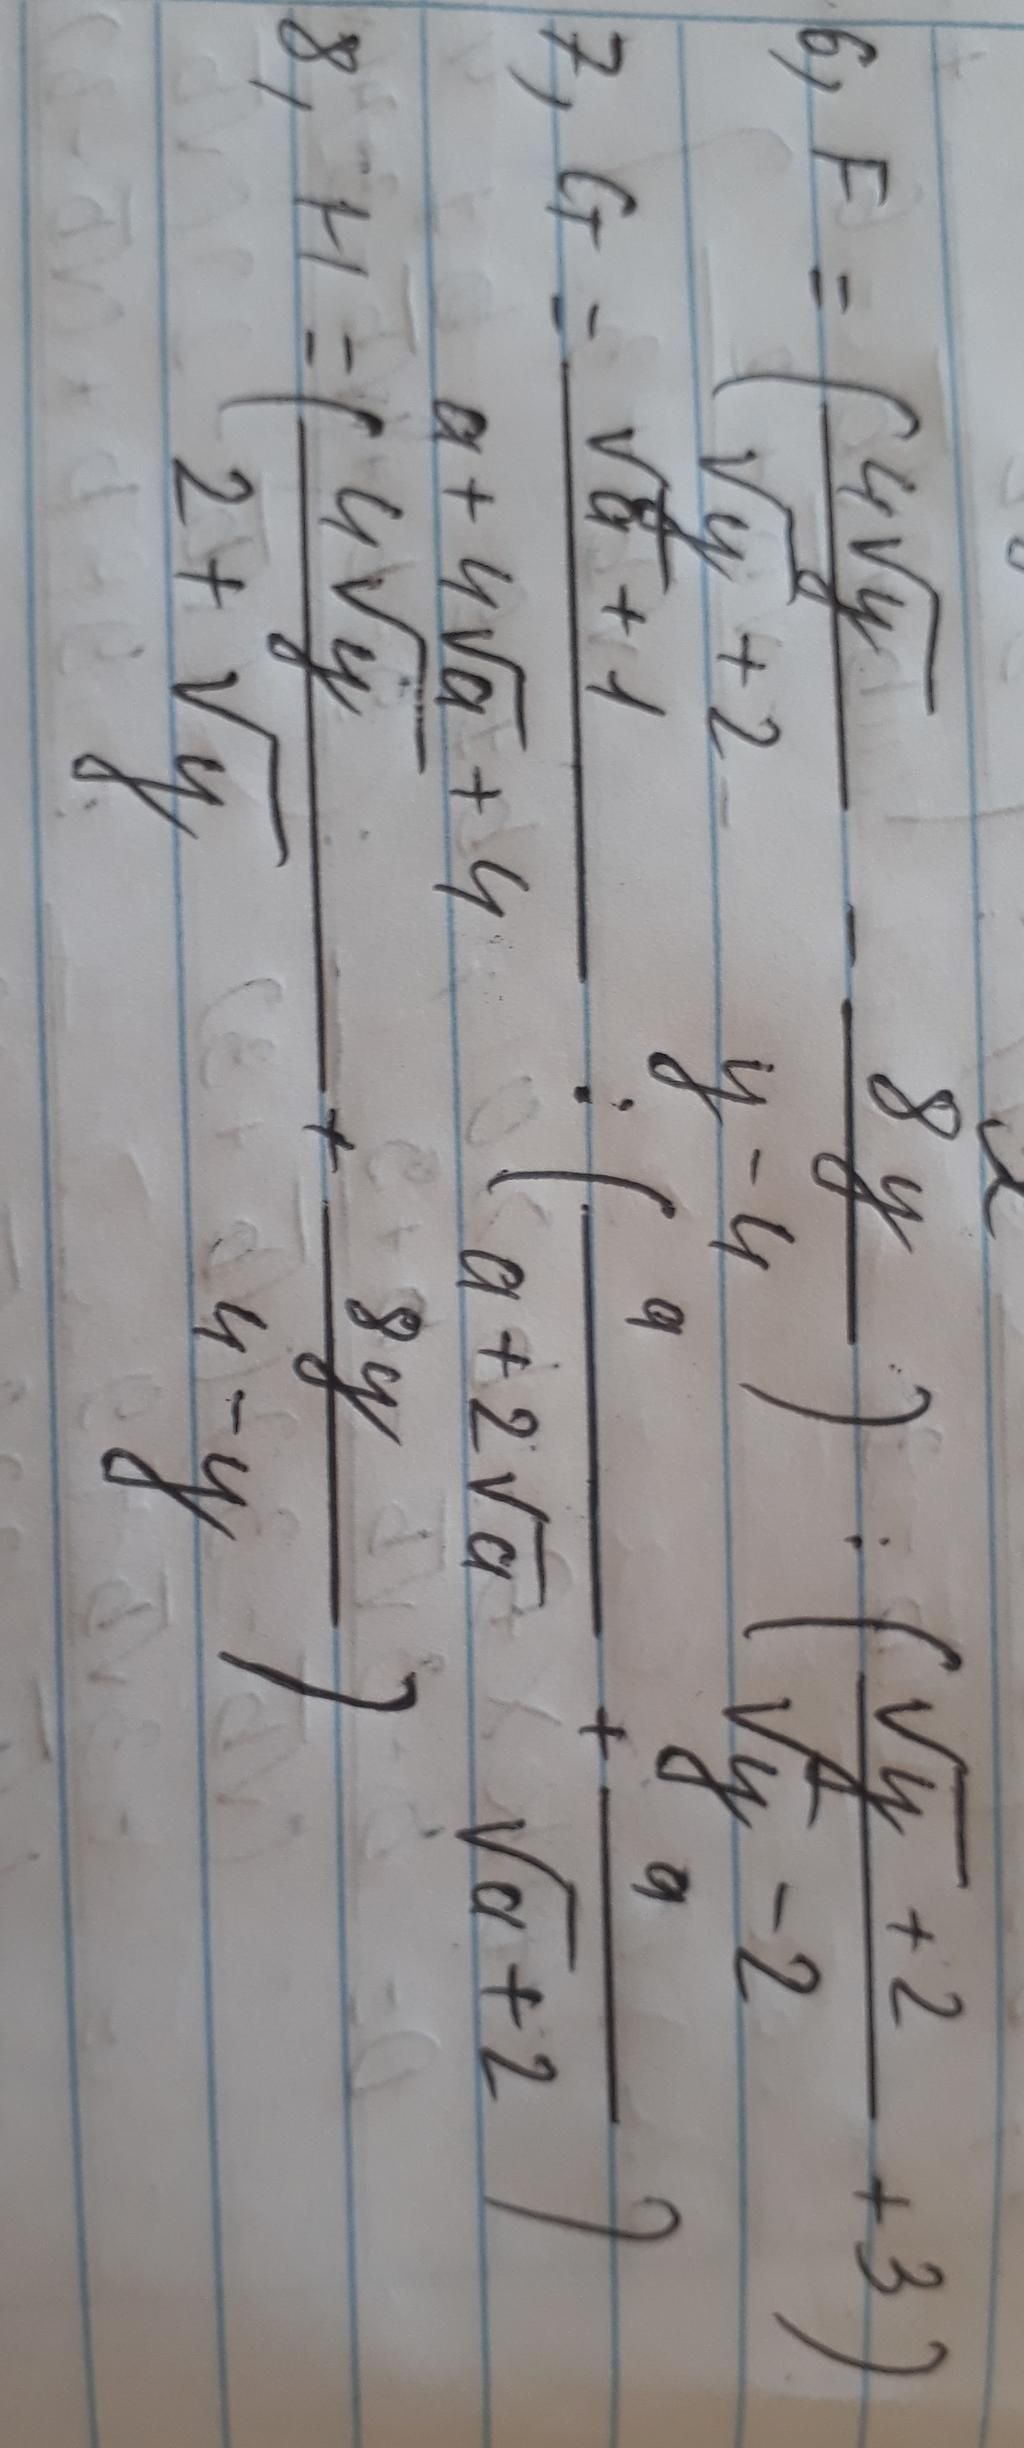 6, F = ( 4√y / √y + 2 - 8y / y - 4 ) : ( √y + 2 / √y - 2 + 3 )
7, G = √a + 1 / a + 4√a + 4 : ( a / a + 2√a + a / √a + 2 )
8, H = ( 4√y / 2 + √y + 8y / 4 - y )